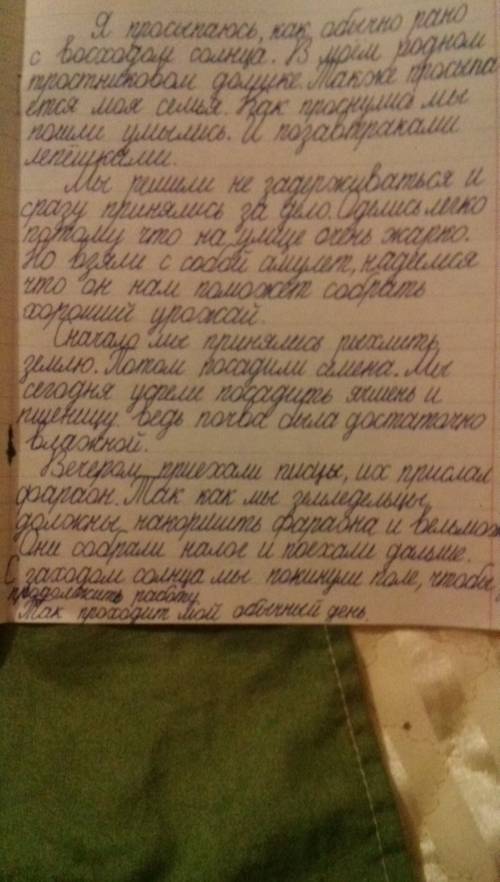 Я просыпаюсь, как обычно рано
с восходом солнца. В моём родном
тростниковом домике. Также просыпа
ется моя семья. Как проснулись мы
пошли умылись. И позавтракали
лепёшками.
Мы решили не задерживаться и
сразу принялись за дело. Оделись легко
потому что на улице очень жарко.
Но взяли с собой амулет, надеимся
что он нам поможет собрать
хороший урожай.
Сначало мы принялись рыхлить
землю. Потом посадили семена. Мы
сегодня успели посадить ячмень и
пшеницу ведь почва была достаточно
влажной.
Вечером приехали писцы, их прислал
фараон. Так как мы земледельцы
должны накормить фараона и вельмож
Они собрали налог и поехали дальше.
С заходом солнца мы покинули поле, чтобы
продолжить работу.
Так проходит мой обычный день.